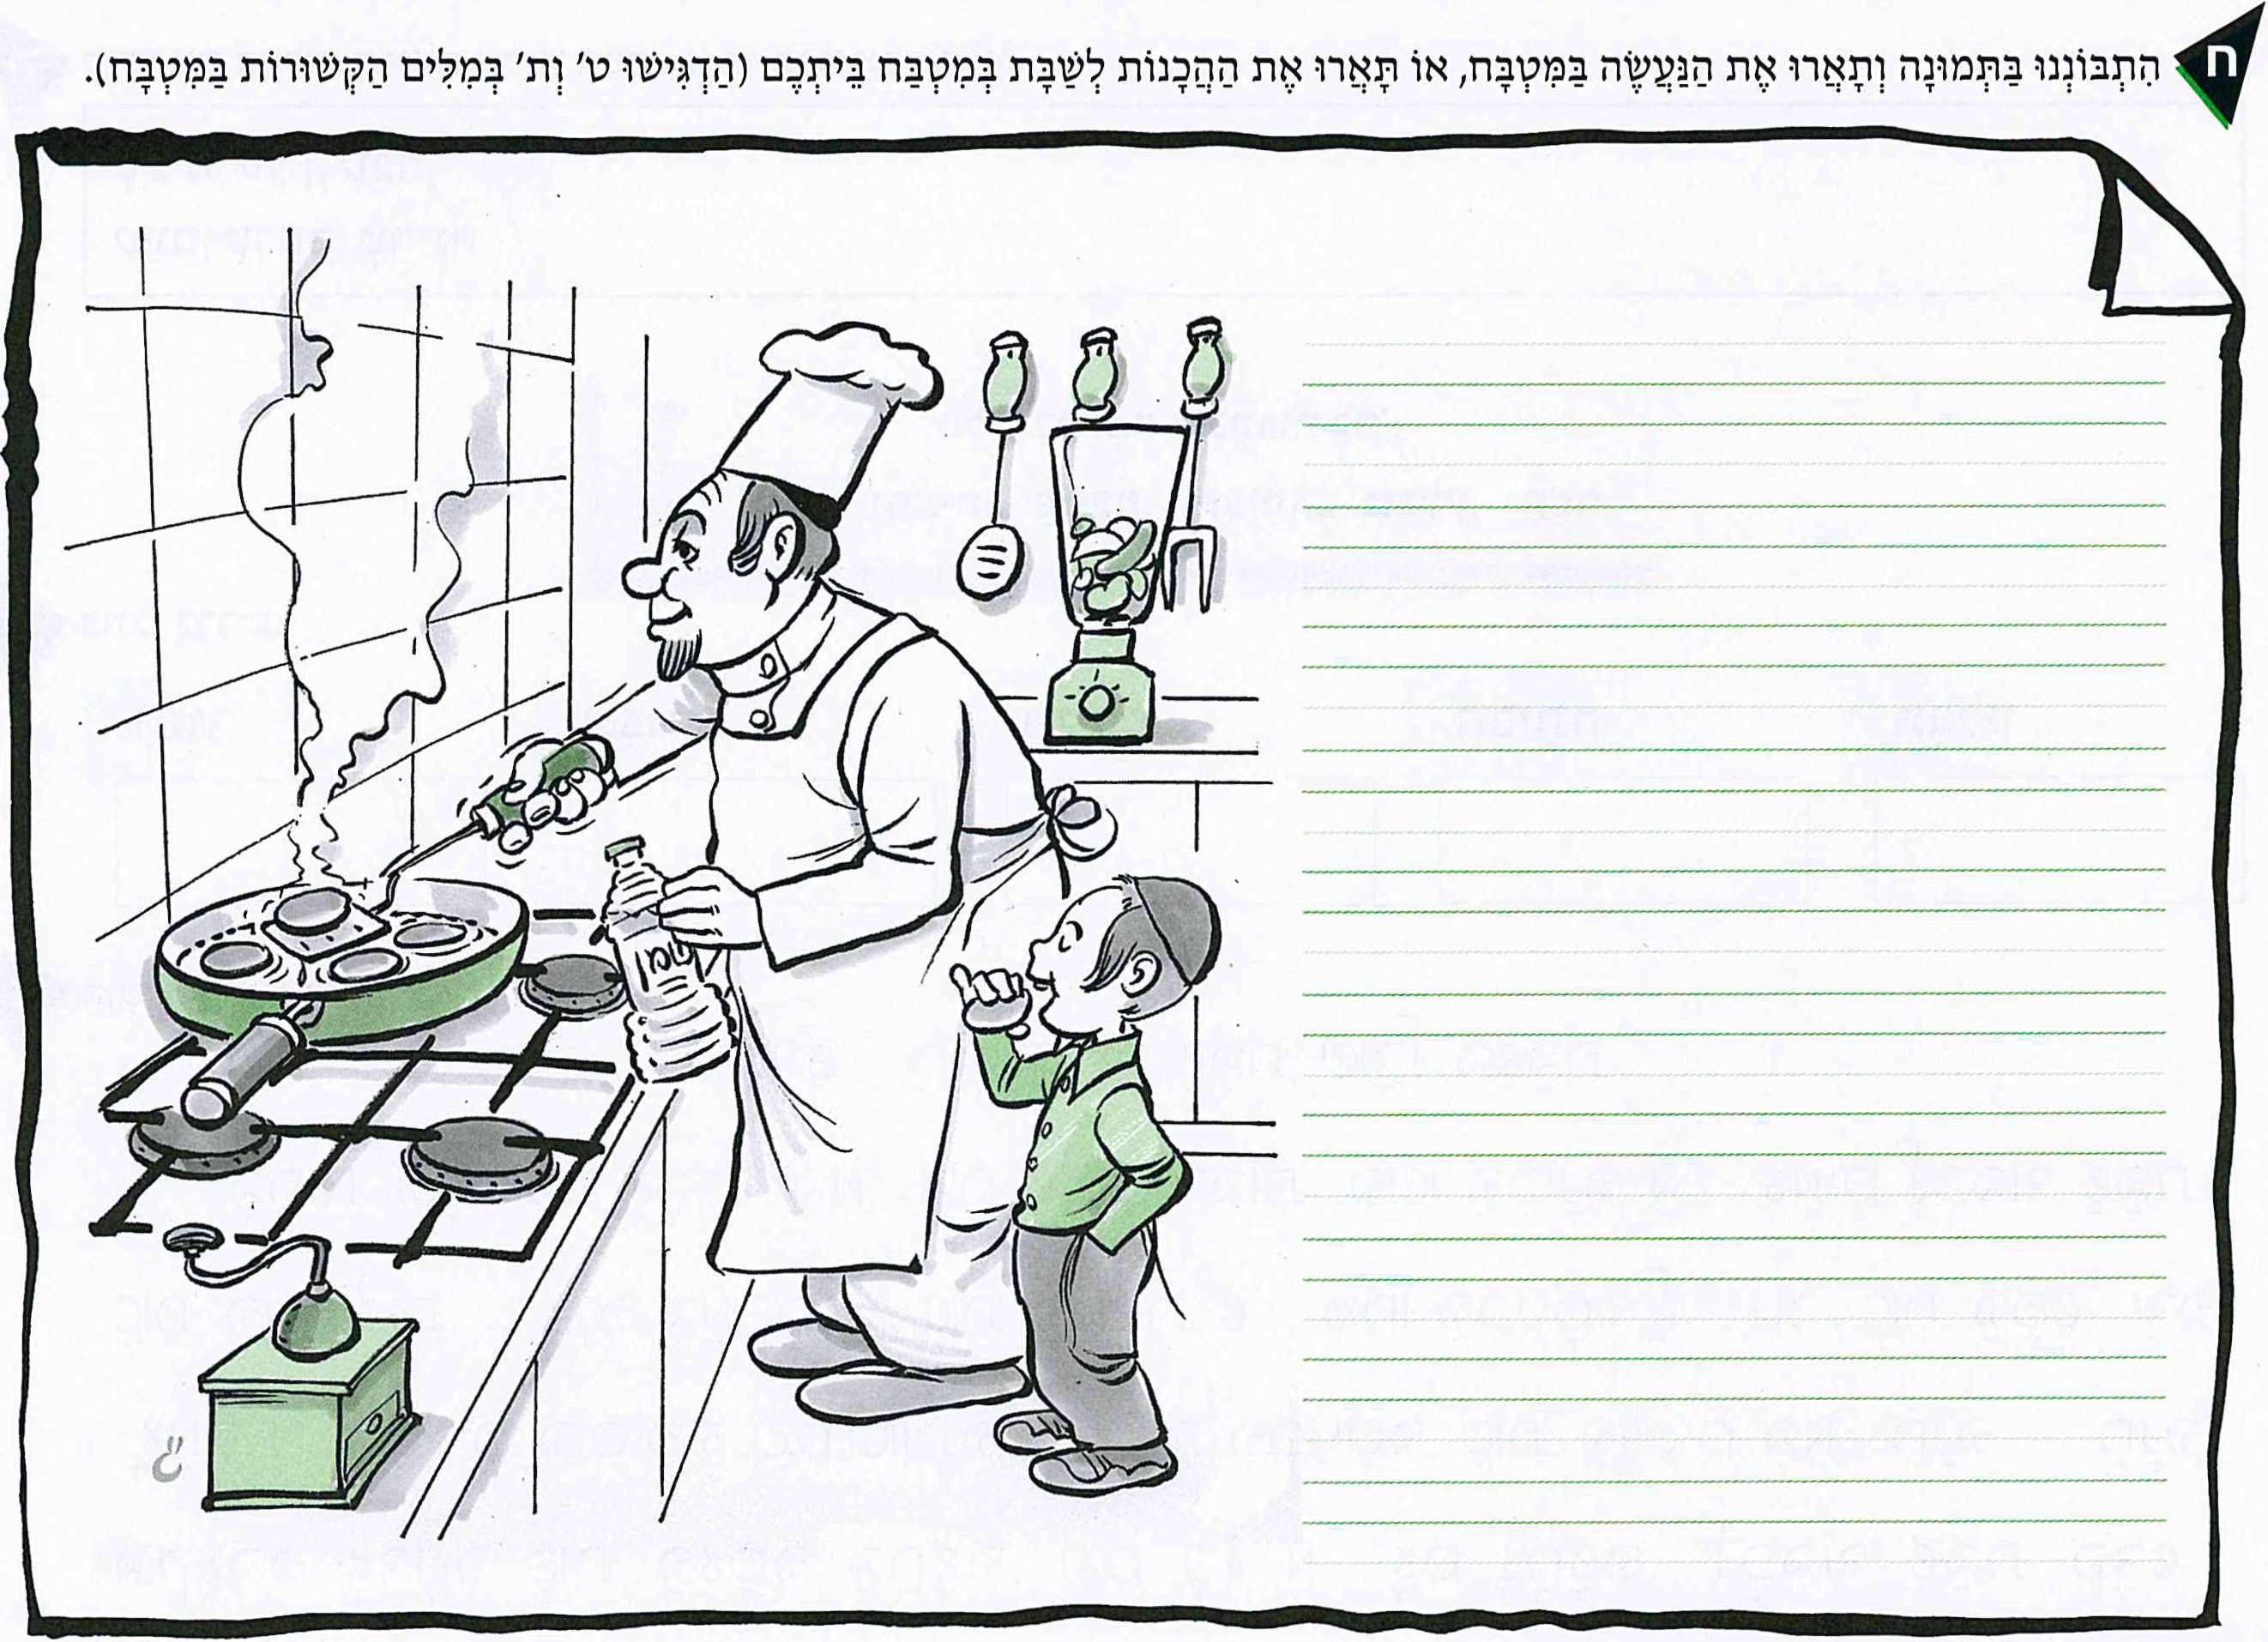 ח
הִתְבּוֹנְנוּ בַּתְּמוּנָה וְתָאֲרוּ אֶת הַנַּעֲשֶׂה בַּמִּטְבָּח, אוֹ תָּאֲרוּ אֶת הַהֲכָנוֹת לְשַׁבָּת בְּמִטְבַּח בֵּיתְכֶם (הַדְגִּישׁוּ ט' וְת' בְּמִלִּים הַקְּשׁוּרוֹת בַּמִּטְבָּח).